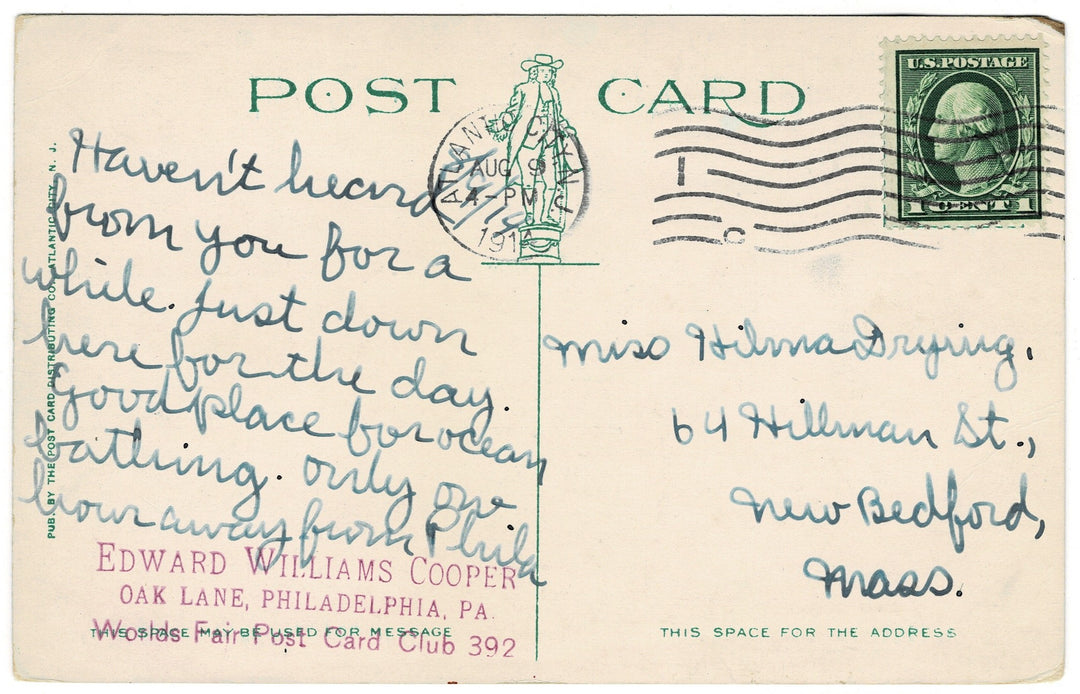 POST CARD
U.S. POSTAGE
1 CENT 1
ATLANTIC CITY, N.J.
AUG 9
4-PM
191
Haven't heard
from you for a
while. Just down
here for the day.
Good place for ocean
bathing. only one
hour away from Phila
EDWARD WILLIAMS COOPER
OAK LANE, PHILADELPHIA, PA.
Worlds Fair Post Card Club 392
THIS SPACE MAY BE USED FOR MESSAGE
PUB. BY THE POST CARD DISTRIBUTING CO., ATLANTIC CITY, N. J.
Miss Hilma Drying.
64 Hillman St.,
New Bedford,
Mass.
THIS SPACE FOR THE ADDRESS